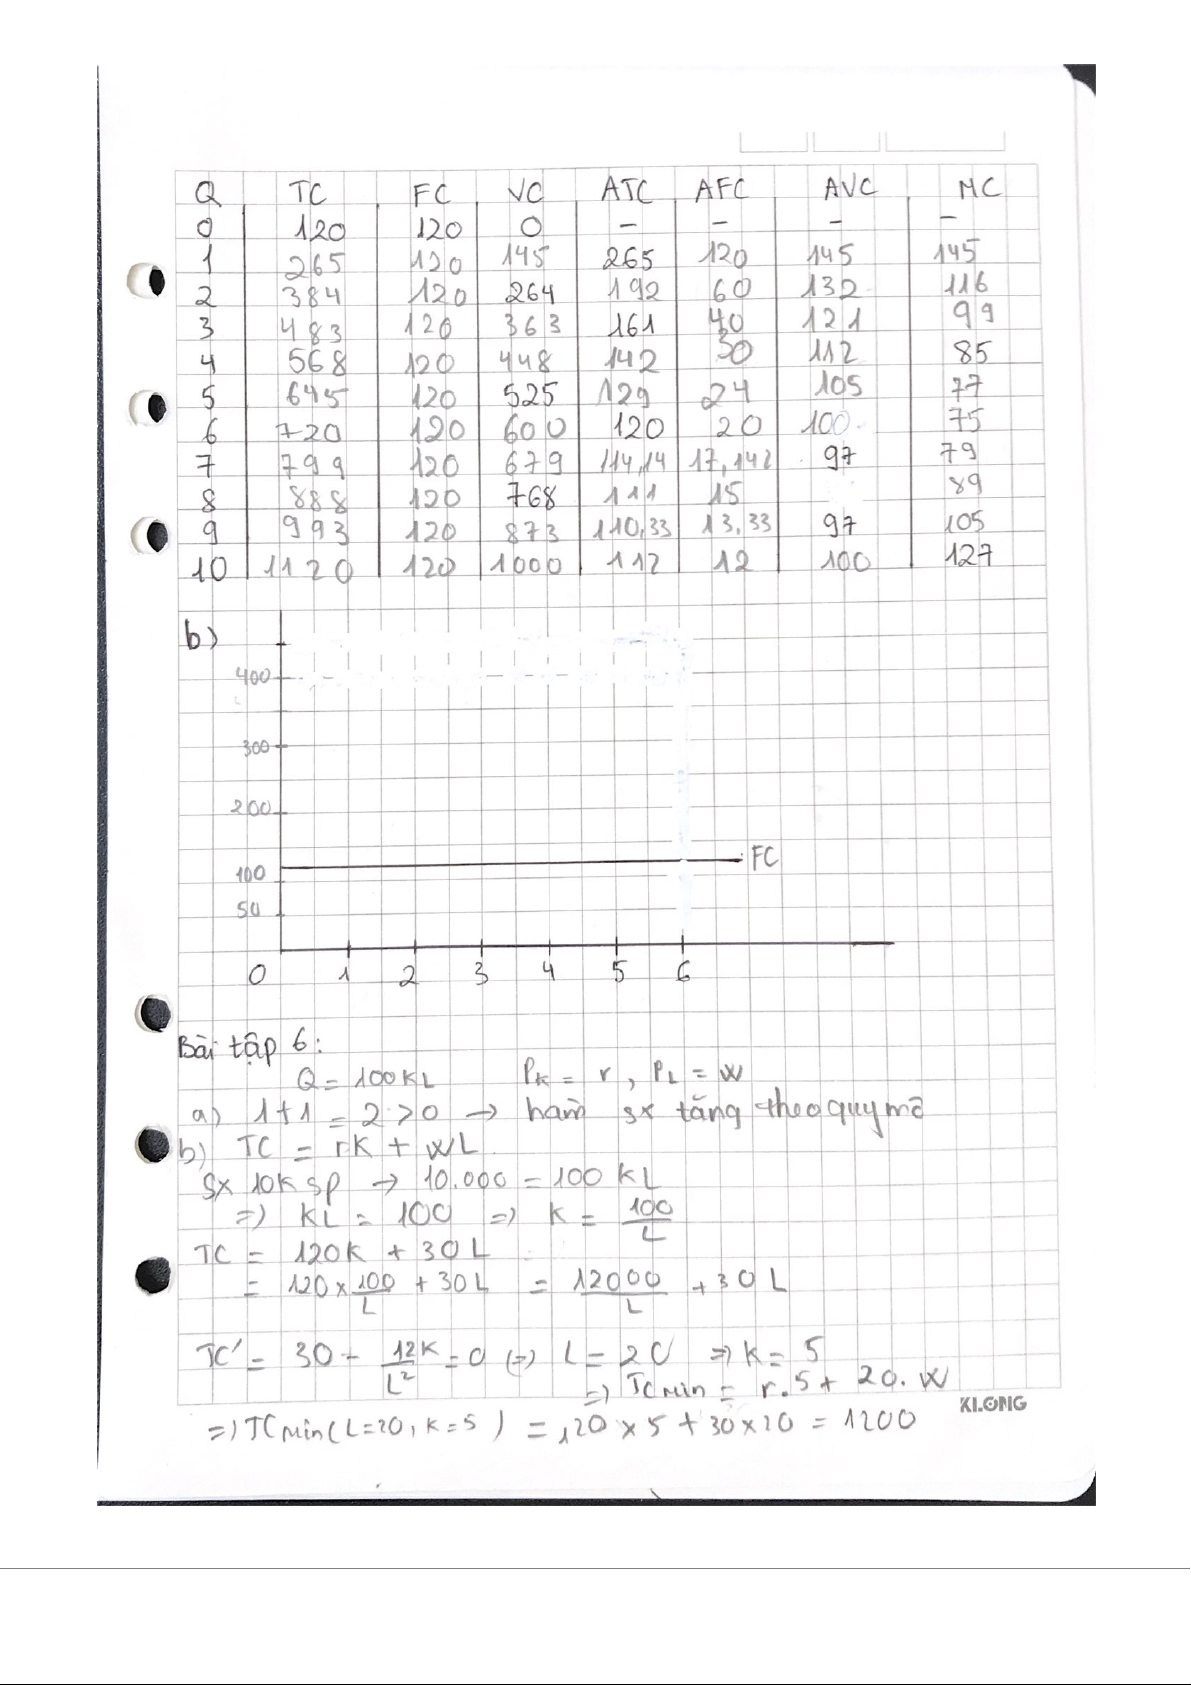 Q TC FC VC ATC AFC AVC MC
0 120 120 0 - - - -
1 265 120 145 265 120 145 145
2 384 120 264 192 60 132 116
3 483 120 363 161 40 121 99
4 568 120 448 142 30 112 85
5 645 120 525 129 24 105 77
6 720 120 600 120 20 100 75
7 799 120 679 114,14 17,142 97 79
8 888 120 768 111 15 89
9 993 120 873 110,33 13,33 97 105
10 1120 120 1000 112 12 100 127
b)
400
300
200
FC
100
50
0 1 2 3 4 5 6
Bài tập 6:
Q = 100KL PK = r, PL = W
a) 1+1 = 2 > 0 → hàm sx tăng theo quy mô
b) TC = rK + WL
sx 10K sp → 10.000 = 100 KL
=> KL = 100 => K = 100/L
TC = 120K + 30L
= 120 x 100/L + 30L = 12000/L + 30L
TC' = 30 - 12K/L² = 0 (=) L = 20 => K = 5
=> TCmin = r.5 + 20.W
=> TCmin(L=20, K=5) = 120 x 5 + 30 x 20 = 1200
KLONG